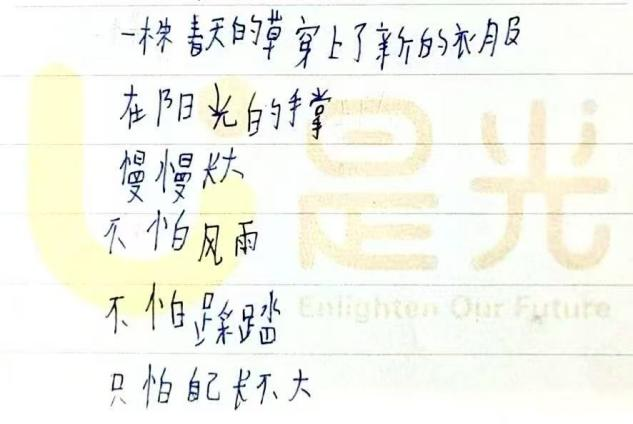 一株春天的草穿上了新的衣服
在阳光的手掌
慢慢长大
不怕风雨
晨光
不怕踩踏
Enlighten Our Future
只怕自己长不大